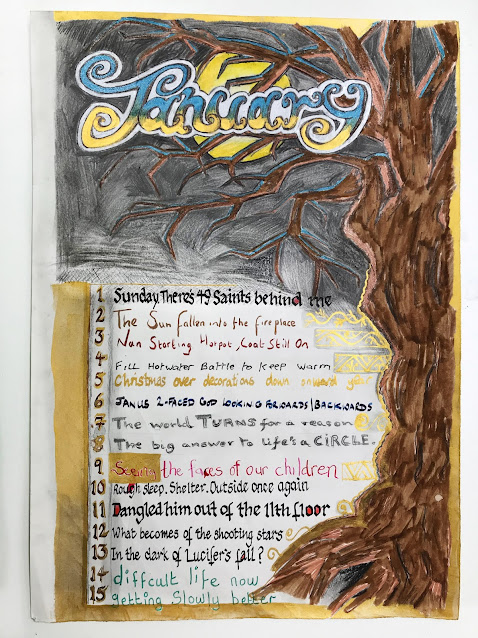 January
1 Sunday. There's 49 Saints behind me
2 The Sun fallen into the fireplace
3 Nan Starting Hotpot, Coat Still On
4 Fill Hotwater Battle to Keep warm
5 Christmas over decorations down onward year
6 JANUS 2-FACED GOD LOOKING FORWARDS/BACKWARDS
7 The world TURNS for a reason
8 The big answer to life's a CIRCLE.
9 Seeing the faces of our children
10 Rough sleep. Shelter. Outside once again
11 Dangled him out of the 11th floor
12 What becomes of the shooting stars
13 In the dark of Lucifer's fall?
14 diffcult life now
15 getting Slowly better